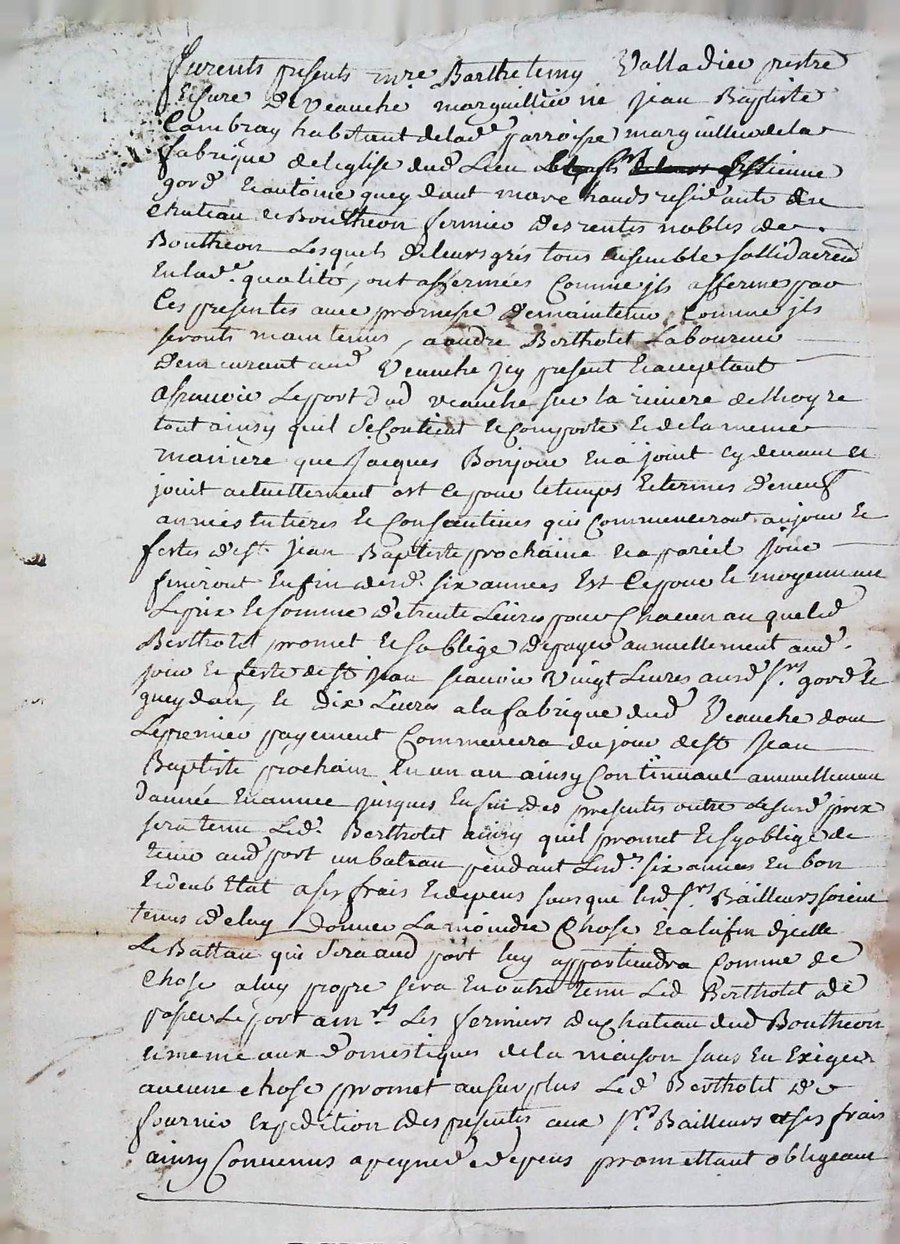 furents presents mre Barthelemy Valladieu prestre
Et cure De veauche marguillier ne jean Baptiste
Cambray habitant de lade parroisse marguillier de la
fabrique de leglise dud Lieu Estienne
gord Et antoine queydant marchands residants au
chateau de Boutheon fermier des rentes nobles de
Boutheon Lesquels de leurs grés tous ensemble sollidaerem
En lade qualité, ont affermées comme jls afferme par
Ces presentes avec promesse de maintenir comme jls
seronts maintenus, a andre Bertholet Laboureur
demeurant aud Veauche jcy present Et acceptant
asscavoir Le port dud veauche sur la riviere de Lhoyre
tout ainsy quil Se Contient Et Comporte Et de la meme
maniere que Jacques Bonjour En a joint cy devant Et
joint actuellement est ce pour le temps Et termes de neuf
années Entieres Et Consecutives qui Commenceront au jour Et
festes de st. jean Baptiste prochaine Et a pareil jour
finiront En fin desd. six années Est Ce pour le moyennant
Le prix Et somme de trente Livres pour Chacun an que led
Bertholet promet Et soblige de payer annuellement aud.
jour Et feste de st jean scavoir Vingt Livres ausd srs gord Et
queydan, Et Dix Livres a la fabrique dud Veauche dont
Le premier payement Commencera du jour de st Jean
Baptiste prochain En un an ainsy Continuant annuellemen
dannée En année jusques En fin des presentes outre Le surd prix
sera tenu Led. Bertholet ainsy quil promet Et sy oblige de
tenir aud port un bateau pendant Lesds six années En bon
Et deub Etat a ses frais Et depens sans que lesd srs Bailleurs soient
tenus de luy donner La moindre Chose Et a la fin dicelle
Le Batteau qui Sera aud port luy appartiendra Comme de
Chose a luy propre sera En outre tenu Led Bertholet de
passer Le port a mrs Les fermiers du Chateau dud Boutheon
Et meme aux domestiques de la maison sans En Exiger
aucune chose promet au surplus Led Bertholet de
fournir Expedition des presentes aux srs Bailleurs a ses frais
ainsy Convenus a peyne de depens promettant obligeant